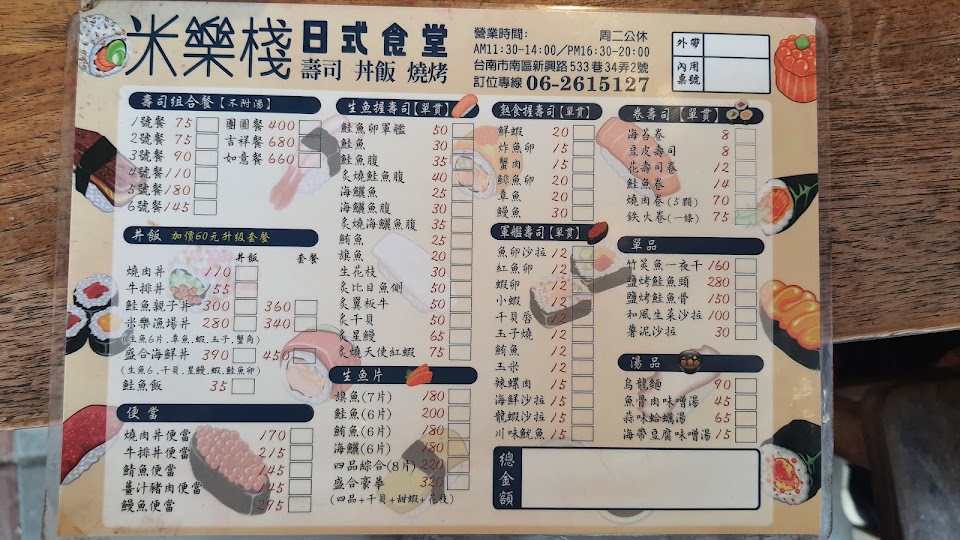 米樂棧 日式食堂
壽司 丼飯 燒烤
營業時間: 周二公休
AM11:30-14:00/PM16:30-20:00
台南市南區新興路533巷34弄2號
訂位專線 06-2615127
外帶
內用票號
壽司組合餐【不附湯】
1號餐 75 團圓餐 400
2號餐 75 吉祥餐 680
3號餐 90 如意餐 660
4號餐 110
5號餐 180
6號餐 145
丼飯 加價60元升級套餐
丼飯 套餐
燒肉丼 110
牛排丼 155
鮭魚親子丼 300 360
米樂漁場丼 280 340
(生魚6片,章魚,蝦,玉子,蟹角)
盛合海鮮丼 390 450
(生魚6,干貝,星鰻,蝦,鮭魚卵)
鮭魚飯 35
便當
燒肉丼便當 170
牛排丼便當 215
鯖魚便當 145
薑汁豬肉便當 145
鰻魚便當 295
生魚握壽司【單貫】
鮭魚卵軍艦 50
鮭魚 30
鮭魚腹 35
炙燒鮭魚腹 40
海鱺魚 25
海鱺魚腹 30
炙燒海鱺魚腹 35
鮪魚 25
旗魚 20
生花枝 30
炙比目魚側 50
炙翼板牛 50
炙干貝 50
炙星鰻 65
炙燒天使紅蝦 75
生魚片
旗魚(7片) 180
鮭魚(6片) 200
鮪魚(6片) 180
海鱺(6片) 180
四品綜合(8片) 220
盛合豪華 320
(四品+干貝+甜蝦+花枝)
熟食握壽司【單貫】
鮮蝦 20
炸魚卵 15
蟹肉 15
鯡魚卵 20
章魚 20
鰻魚 30
軍艦壽司【單貫】
魚卵沙拉 12
紅魚卵 12
蝦卵 12
小蝦 12
干貝唇 12
玉子燒 12
鮪魚 12
玉米 12
辣螺肉 15
海鮮沙拉 15
龍蝦沙拉 15
川味魷魚 15
卷壽司【單貫】
海苔卷 8
豆皮壽司 8
花壽司卷 12
鮭魚卷 14
燒肉卷(5顆) 70
鉄火卷(一條) 75
單品
竹筴魚一夜干 160
鹽烤鮭魚頭 280
鹽烤鮭魚骨 150
和風生菜沙拉 100
薯泥沙拉 30
湯品
烏龍麵 90
魚骨肉味噌湯 45
蒜味蛤蠣湯 65
海帶豆腐味噌湯 15
總金額